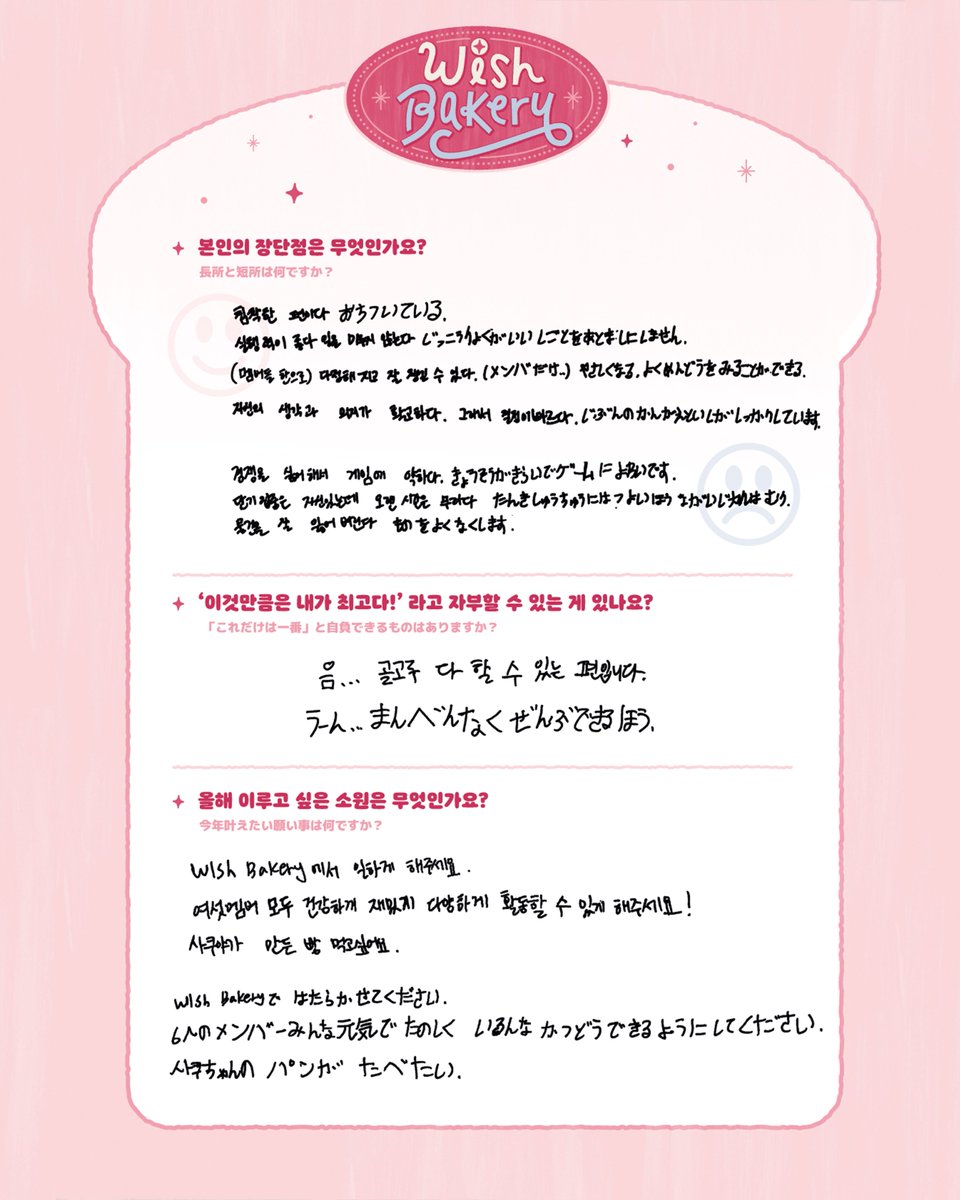 Wish
Bakery
본인의 장단점은 무엇인가요?
長所と短所は何ですか？
침착한 편이다 おちついている.
실행력이 좋다 일을 미루지 않는다 じっこうりょくがいい しごとをあとまわしにしません.
(멤버들 한정으로) 다정해지고 잘 챙길 수 있다. (メンバだけ..) やさしくなる. よくめんどうをみることができる.
자신의 생각과 의지가 확고하다. 그래서 결정이 빠르다. じぶんのかんがえといしがしっかりしています
경쟁을 싫어해서 게임에 약하다. きょうそうがきらいでゲームによわいです.
단기집중은 자신있는데 오랜 시간은 무리다 たんきしゅうちゅうにはつよいほう ながいじかんはむり.
물건을 잘 잃어버린다 ものをよくなくします.
‘이것만큼은 내가 최고다!’ 라고 자부할 수 있는 게 있나요?
「これだけは一番」と自負できるものはありますか？
음... 골고루 다 할 수 있는 편입니다.
うーん... まんべんなく ぜんぶできるほう.
올해 이루고 싶은 소원은 무엇인가요?
今年叶えたい願い事は何ですか？
Wish Bakery에서 일하게 해주세요.
여섯멤버 모두 건강하게 재밌게 다양하게 활동할 수 있게 해주세요!
사쿠야가 만든 빵 먹고싶어요.
Wish Bakeryで はたらかせてください.
6人のメンバーみんな元気で たのしく いろんな かつどうできるようにしてください.
사쿠ちゃんの パンが たべたい.